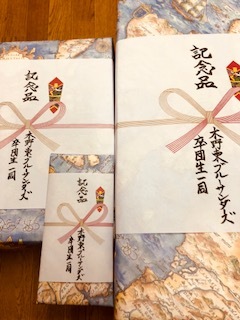 記念品
木野東ブルーサンダーズ
卒団生一同
記念品
木野東ブルーサンダーズ
卒団生一同
記念品
木野東ブルーサンダーズ
卒団生一同